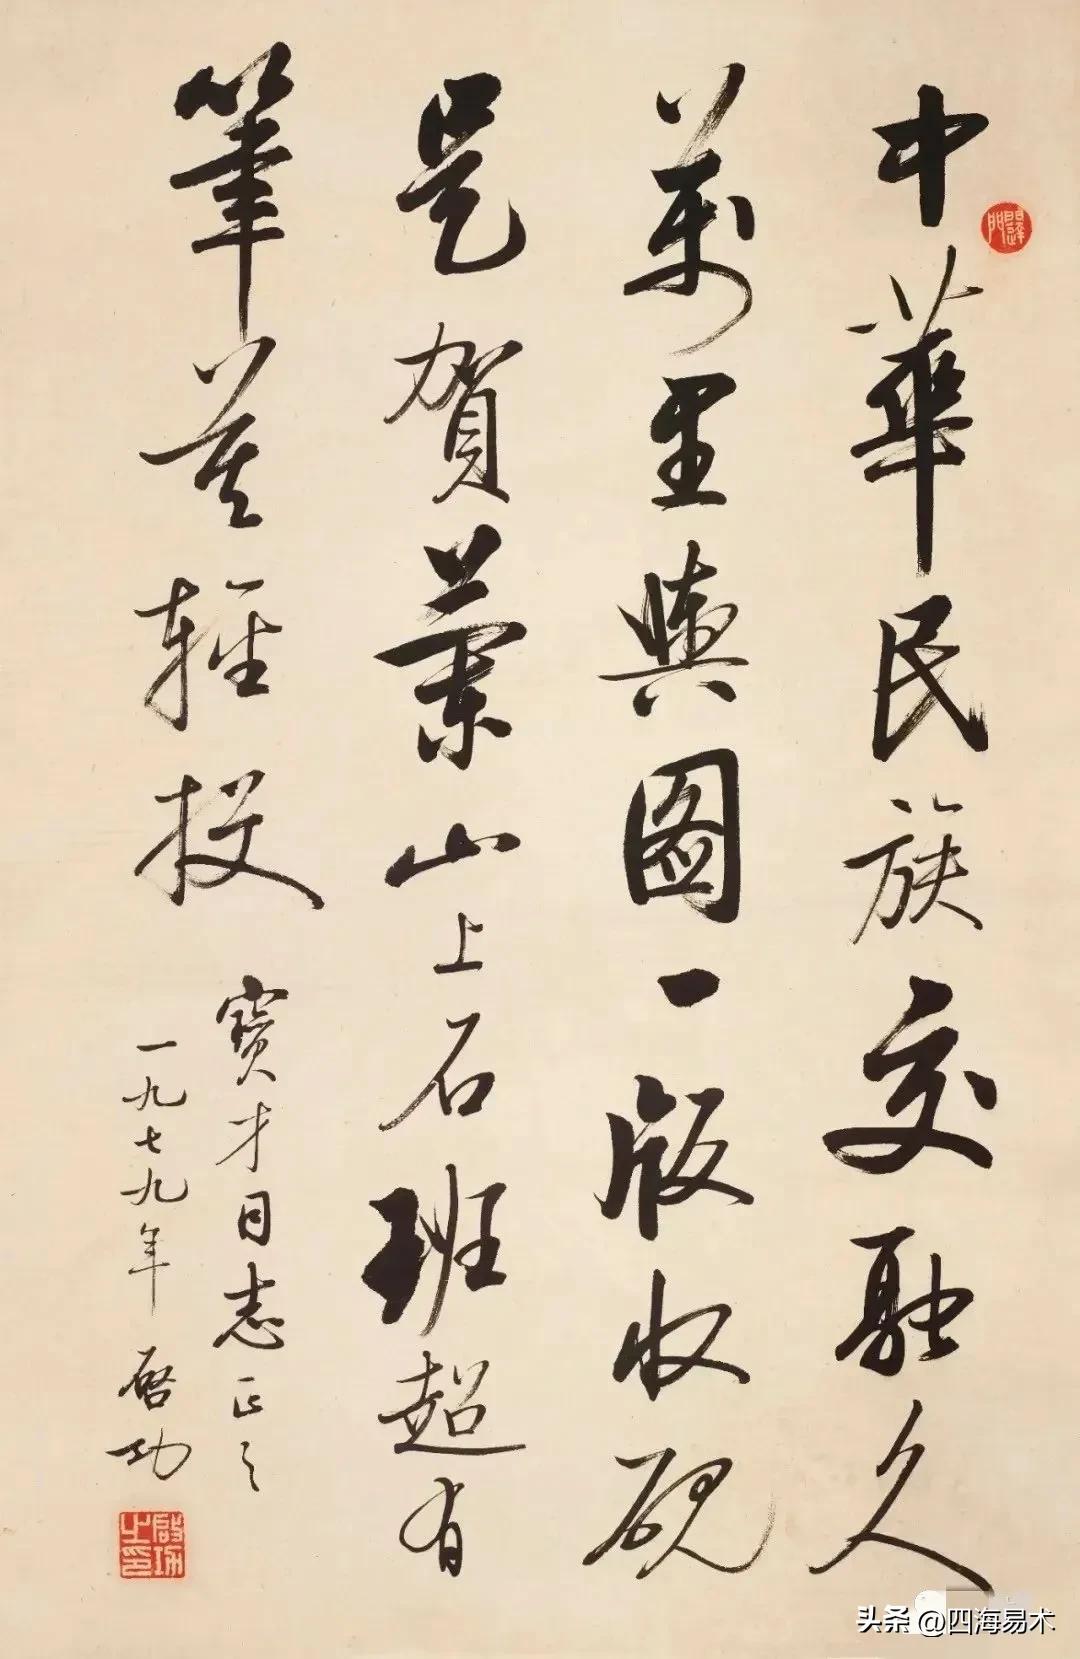 中華民族交融久
萬里輿圖一版收硯
是賀蘭山上石班超有
筆莫輕投
寶才同志正之
一九七九年啓功
啟功之印
头条 @四海易术